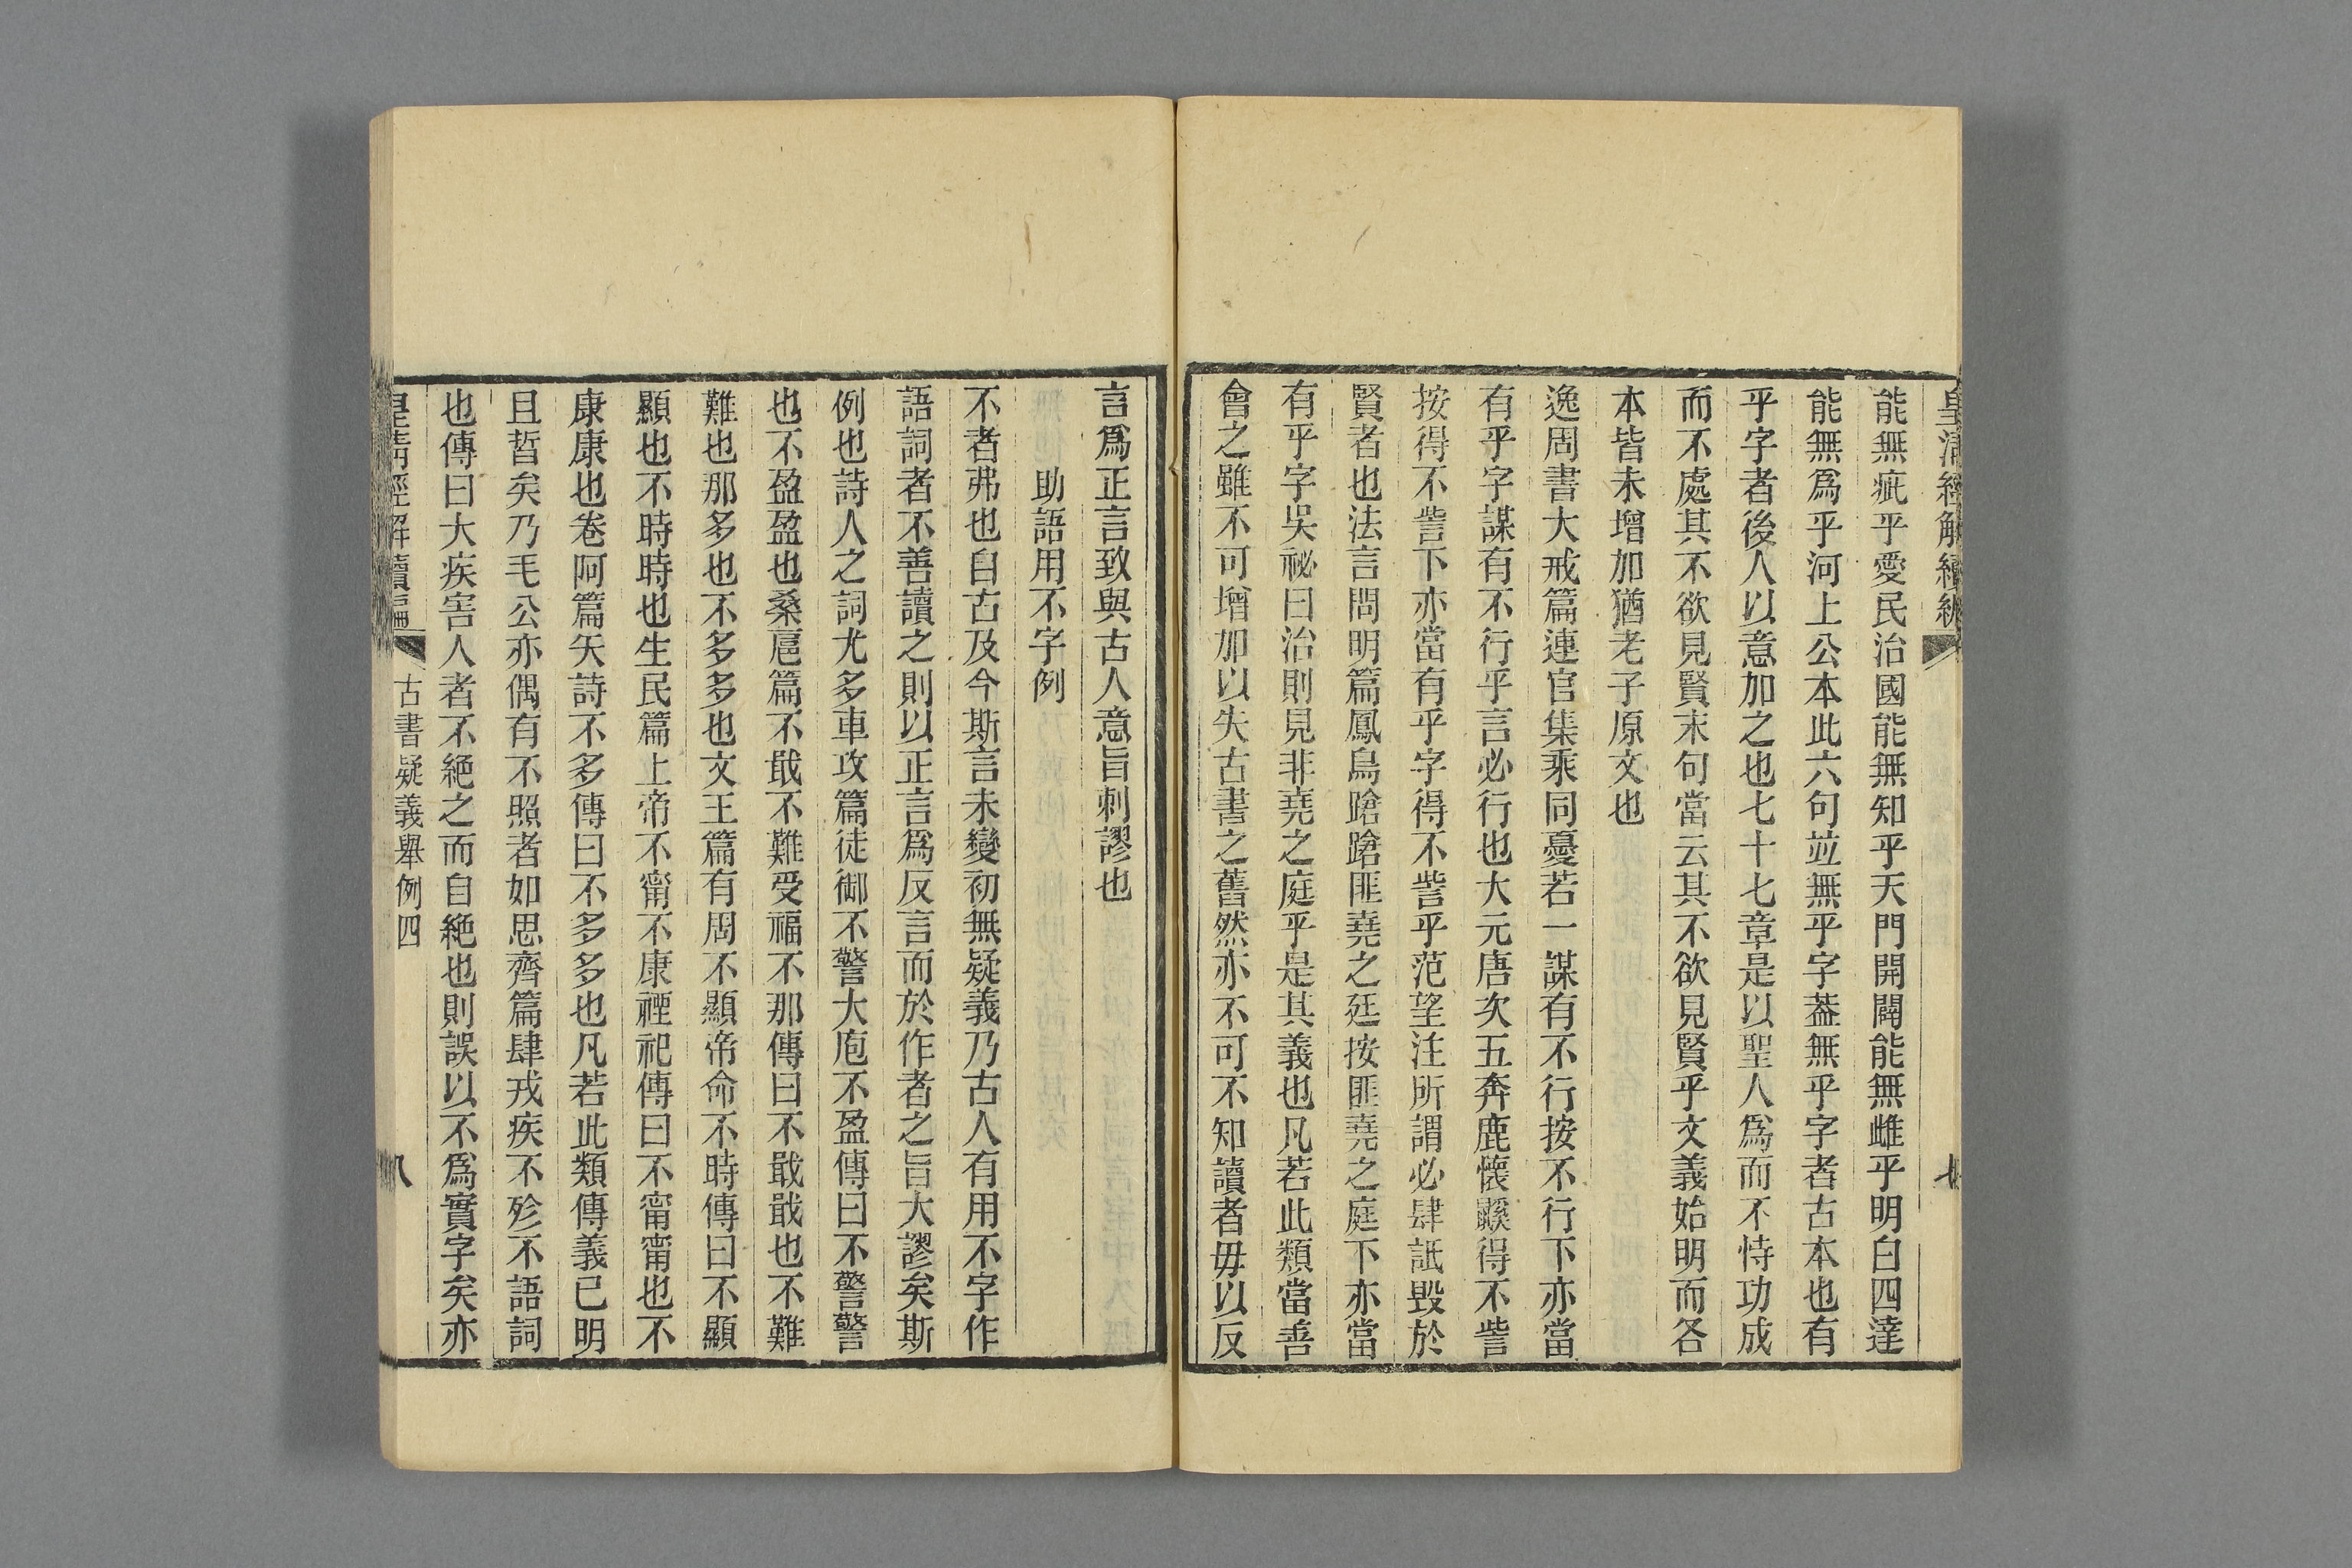 皇清經解續編
七
能無疵乎愛民治國能無知乎天門開闔能無雌乎明白四達
能無爲乎河上公本此六句竝無乎字葢無乎字者古本也有
乎字者後人以意加之也七十七章是以聖人爲而不恃功成
而不處其不欲見賢末句當云其不欲見賢乎文義始明而各
本皆未增加猶老子原文也
逸周書大戒篇連官集乘同憂若一謀有不行按不行下亦當
有乎字謀有不行乎言必行也大元唐次五奔鹿懷鼷得不訾
按得不訾下亦當有乎字得不訾乎范望注所謂必肆詆毀於
賢者也法言問明篇鳳鳥蹌蹌匪堯之廷按匪堯之庭下亦當
有乎字吳祕曰治則見非堯之庭乎是其義也凡若此類當善
會之雖不可增加以失古書之舊然亦不可不知讀者毋以反
言爲正言致與古人意旨刺謬也
助語用不字例
不者弗也自古及今斯言未變初無疑義乃古人有用不字作
語詞者不善讀之則以正言爲反言而於作者之旨大謬矣斯
例也詩人之詞尤多車攻篇徒御不警大庖不盈傳曰不警警
也不盈盈也桑扈篇不戢不難受福不那傳曰不戢戢也不難
難也那多也不多多也文王篇有周不顯帝命不時傳曰不顯
顯也不時時也生民篇上帝不甯不康禋祀傳曰不甯甯也不
康康也卷阿篇矢詩不多傳曰不多多也凡若此類傳義已明
且晳矣乃毛公亦偶有不照者如思齊篇肆戎疾不殄不語詞
也傳曰大疾害人者不絶之而自絶也則誤以不爲實字矣亦
皇清經解續編
古書疑義舉例四
八